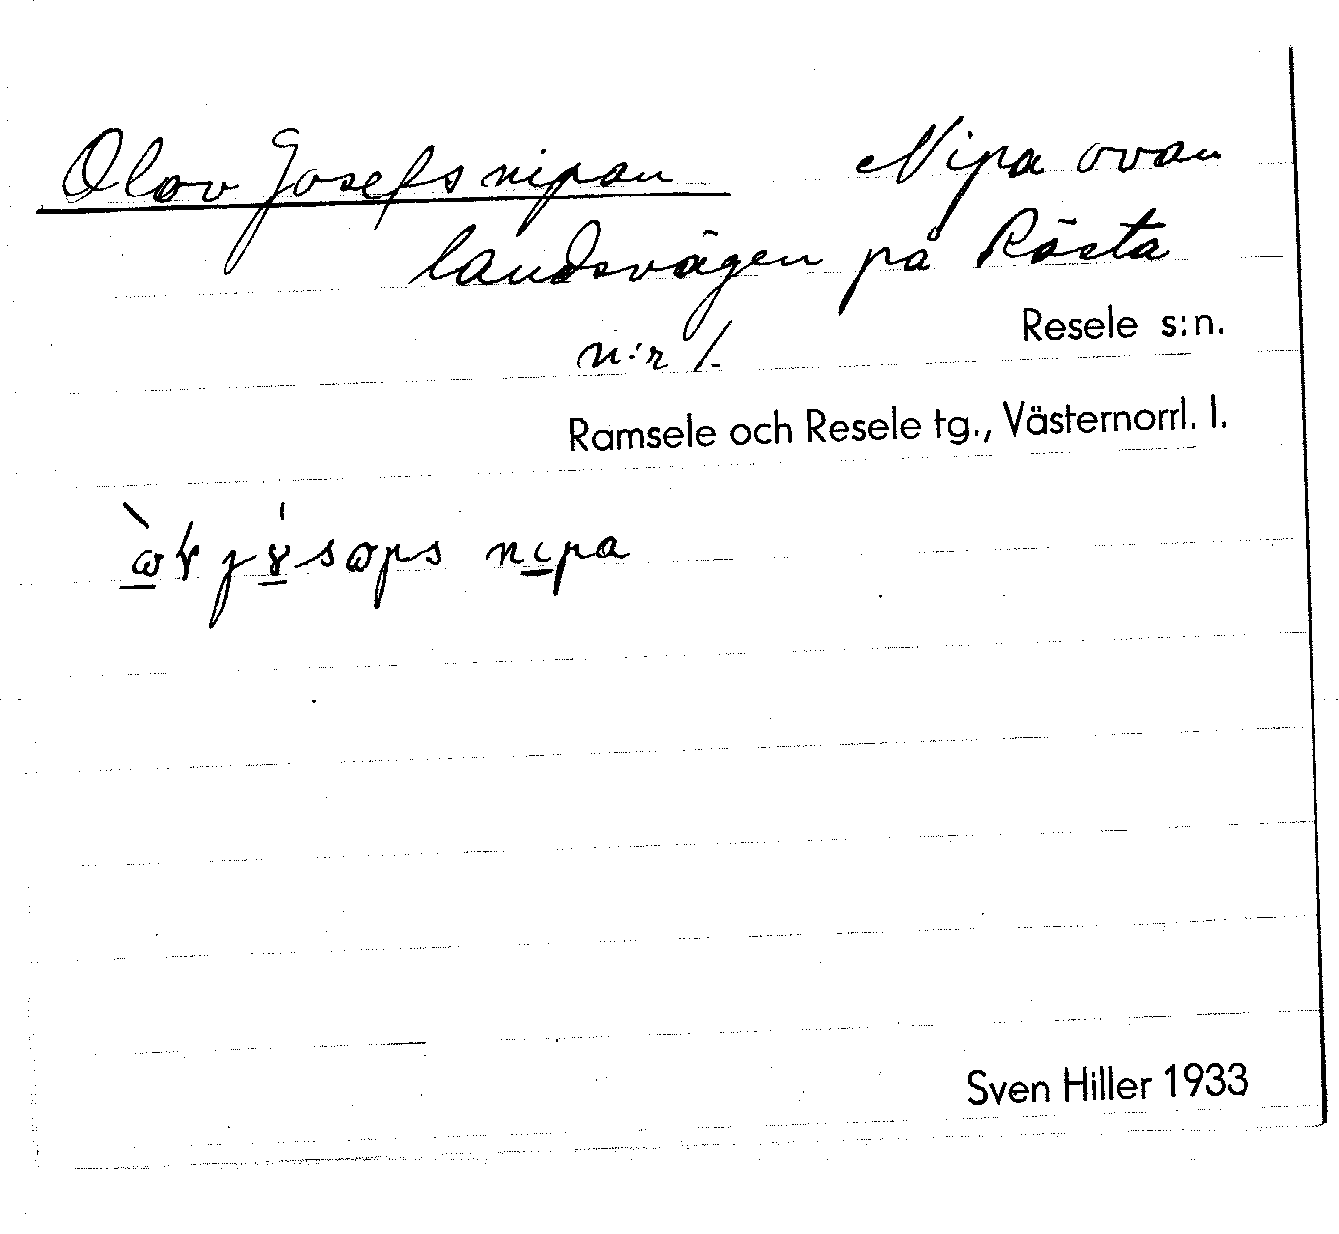 Olov Josefsnipan Nipa ovan
landsvägen på Rösta
n:r 1.
Resele s:n.
Ramsele och Resele tg., Västernorrl. l.
nipa
Sven Hiller 1933